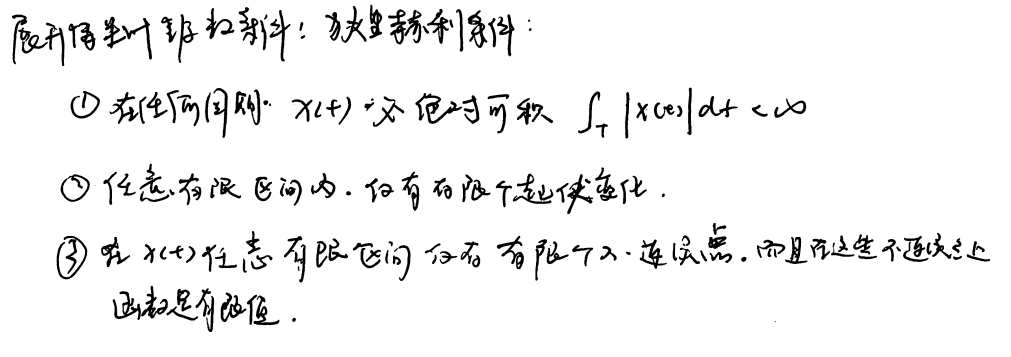 展开傅里叶级数条件：狄里赫利条件：
① 在任何周期. x(t) 必绝对可积 ∫_T |x(t)| dt < ∞
② 任意有限区间内. 仅有有限个起伏变化.
③ 在 x(t) 任意有限区间仅有有限个不连续点. 而且在这些不连续点上
函数是有限值.